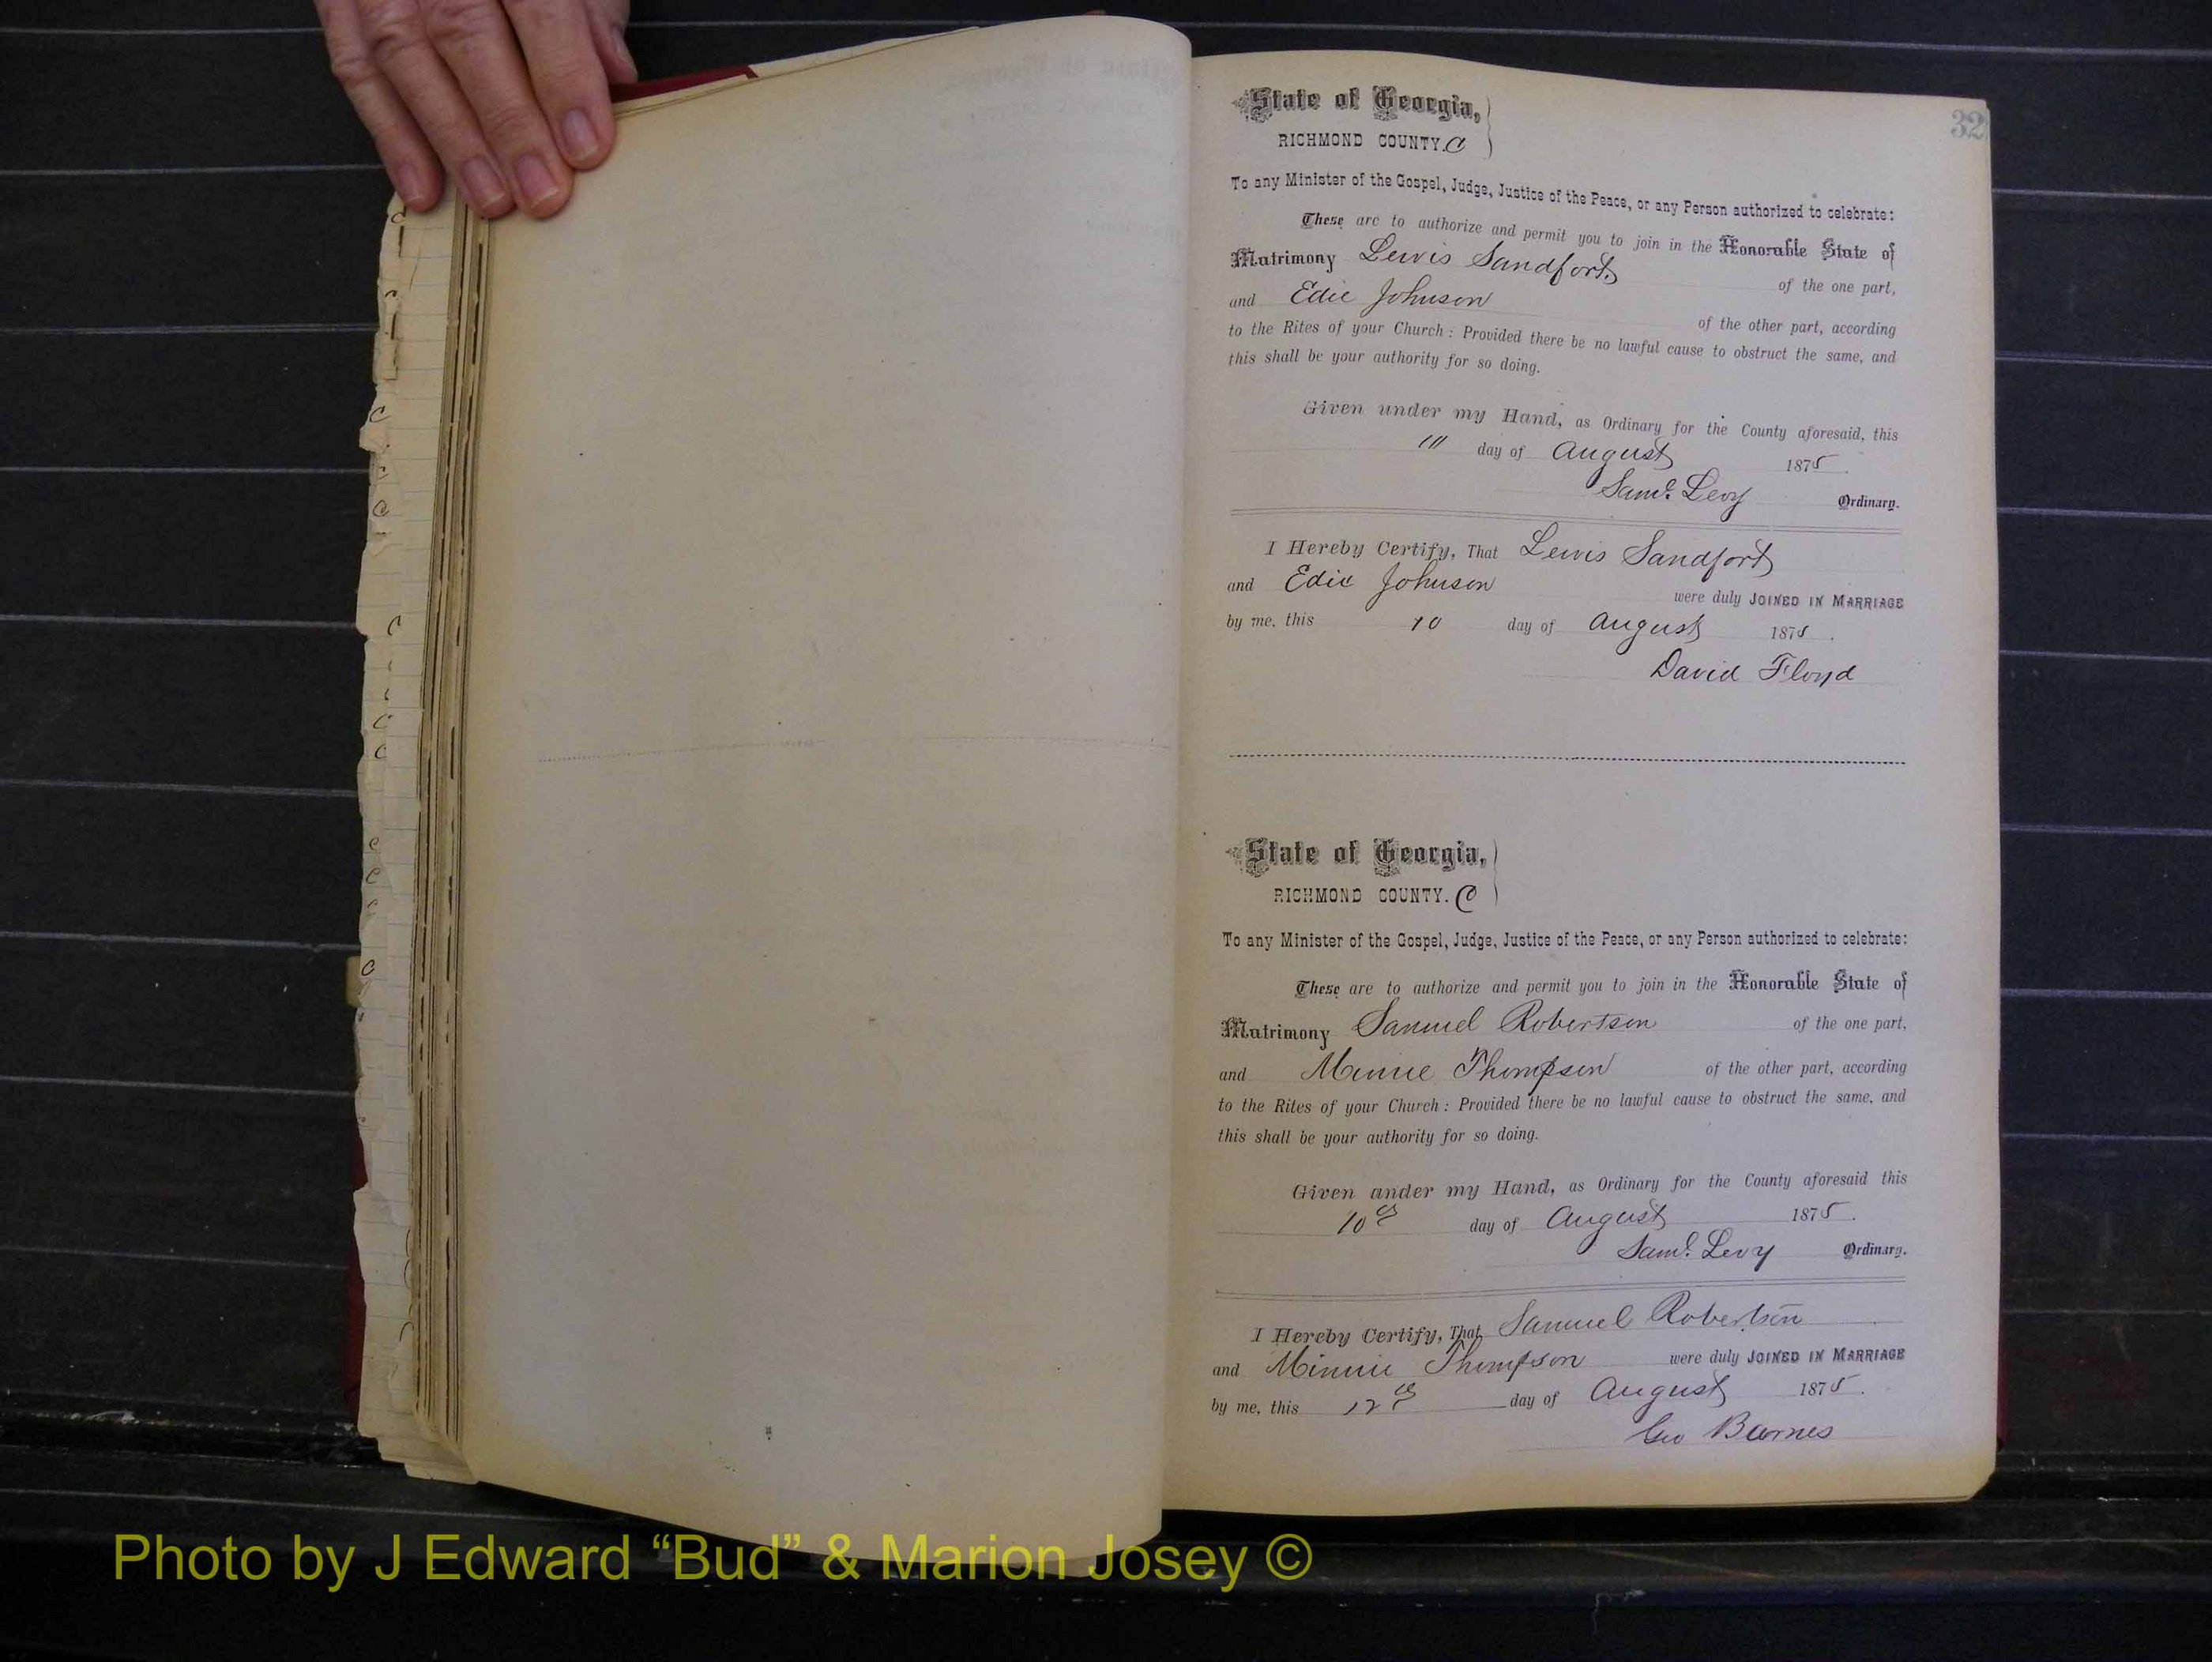 32
State of Georgia,
RICHMOND COUNTY. C
To any Minister of the Gospel, Judge, Justice of the Peace, or any Person authorized to celebrate:
These are to authorize and permit you to join in the Honorable State of
Matrimony Lewis Sandford of the one part,
and Edie Johnson of the other part, according
to the Rites of your Church: Provided there be no lawful cause to obstruct the same, and
this shall be your authority for so doing.
Given under my Hand, as Ordinary for the County aforesaid, this
day of August 1875.
Saml. Levy Ordinary.
I Hereby Certify, That Lewis Sandford
and Edie Johnson were duly JOINED IN MARRIAGE
by me, this 10 day of August 1875.
David Floyd
State of Georgia,
RICHMOND COUNTY. C
To any Minister of the Gospel, Judge, Justice of the Peace, or any Person authorized to celebrate:
These are to authorize and permit you to join in the Honorable State of
Matrimony Samuel Robertson of the one part,
and Minnie Thompson of the other part, according
to the Rites of your Church: Provided there be no lawful cause to obstruct the same, and
this shall be your authority for so doing.
Given under my Hand, as Ordinary for the County aforesaid this
10th day of August 1875.
Saml. Levy Ordinary.
I Hereby Certify, That Samuel Robertson
and Minnie Thompson were duly JOINED IN MARRIAGE
by me, this 12th day of August 1875.
Geo Barnes
Photo by J Edward “Bud” & Marion Josey ©